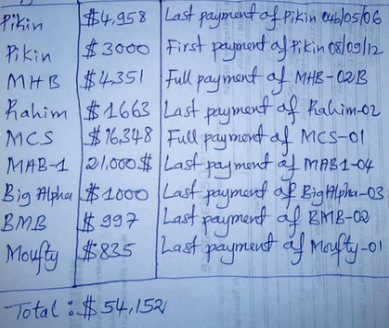 Pikin $4,958 Last payment of Pikin 04b/05/06
Pikin $3000 First payment of Pikin 08/09/12
MHB $4,351 Full payment of MHB-02B
Rahim $1663 Last payment of Rahim-02
MCS $16,348 Full payment of MCS-01
MAB-1 21,000$ Last payment of MAB1-04
Big Alpha $1000 Last payment of Big Alpha-03
BMB $997 Last payment of BMB-02
Moufty $835 Last payment of Moufty-01
Total: $54,152